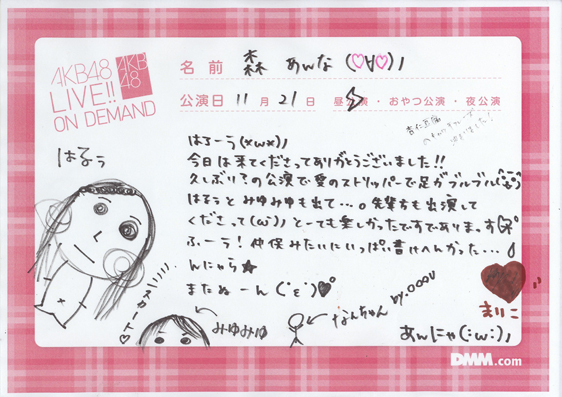 AKB48
LIVE!!
ON DEMAND
AKB
48
名前 森 あんな (♡∀♡)ノ
公演日 11月21日 昼公演・おやつ公演・夜公演
はろーぅ(×ω×)ノ
今日は来てくださってありがとうございました!!
久しぶり?の公演で愛のストリッパーで足がブルブル
はるぅとみゆみゆも出て...。先輩ちも出演して
くださって(ω)ノとーても楽しかったですでありまっす
ふーう!仲俣みたいにいっぱい書けへんかった...
んにゃら★
またねーん(・ε・)♥
はるぅ
スカート♡
みゆみゆ
なんちゃん
by.
まりこ
あんにゃ(・ω・)ノ
DMM.com